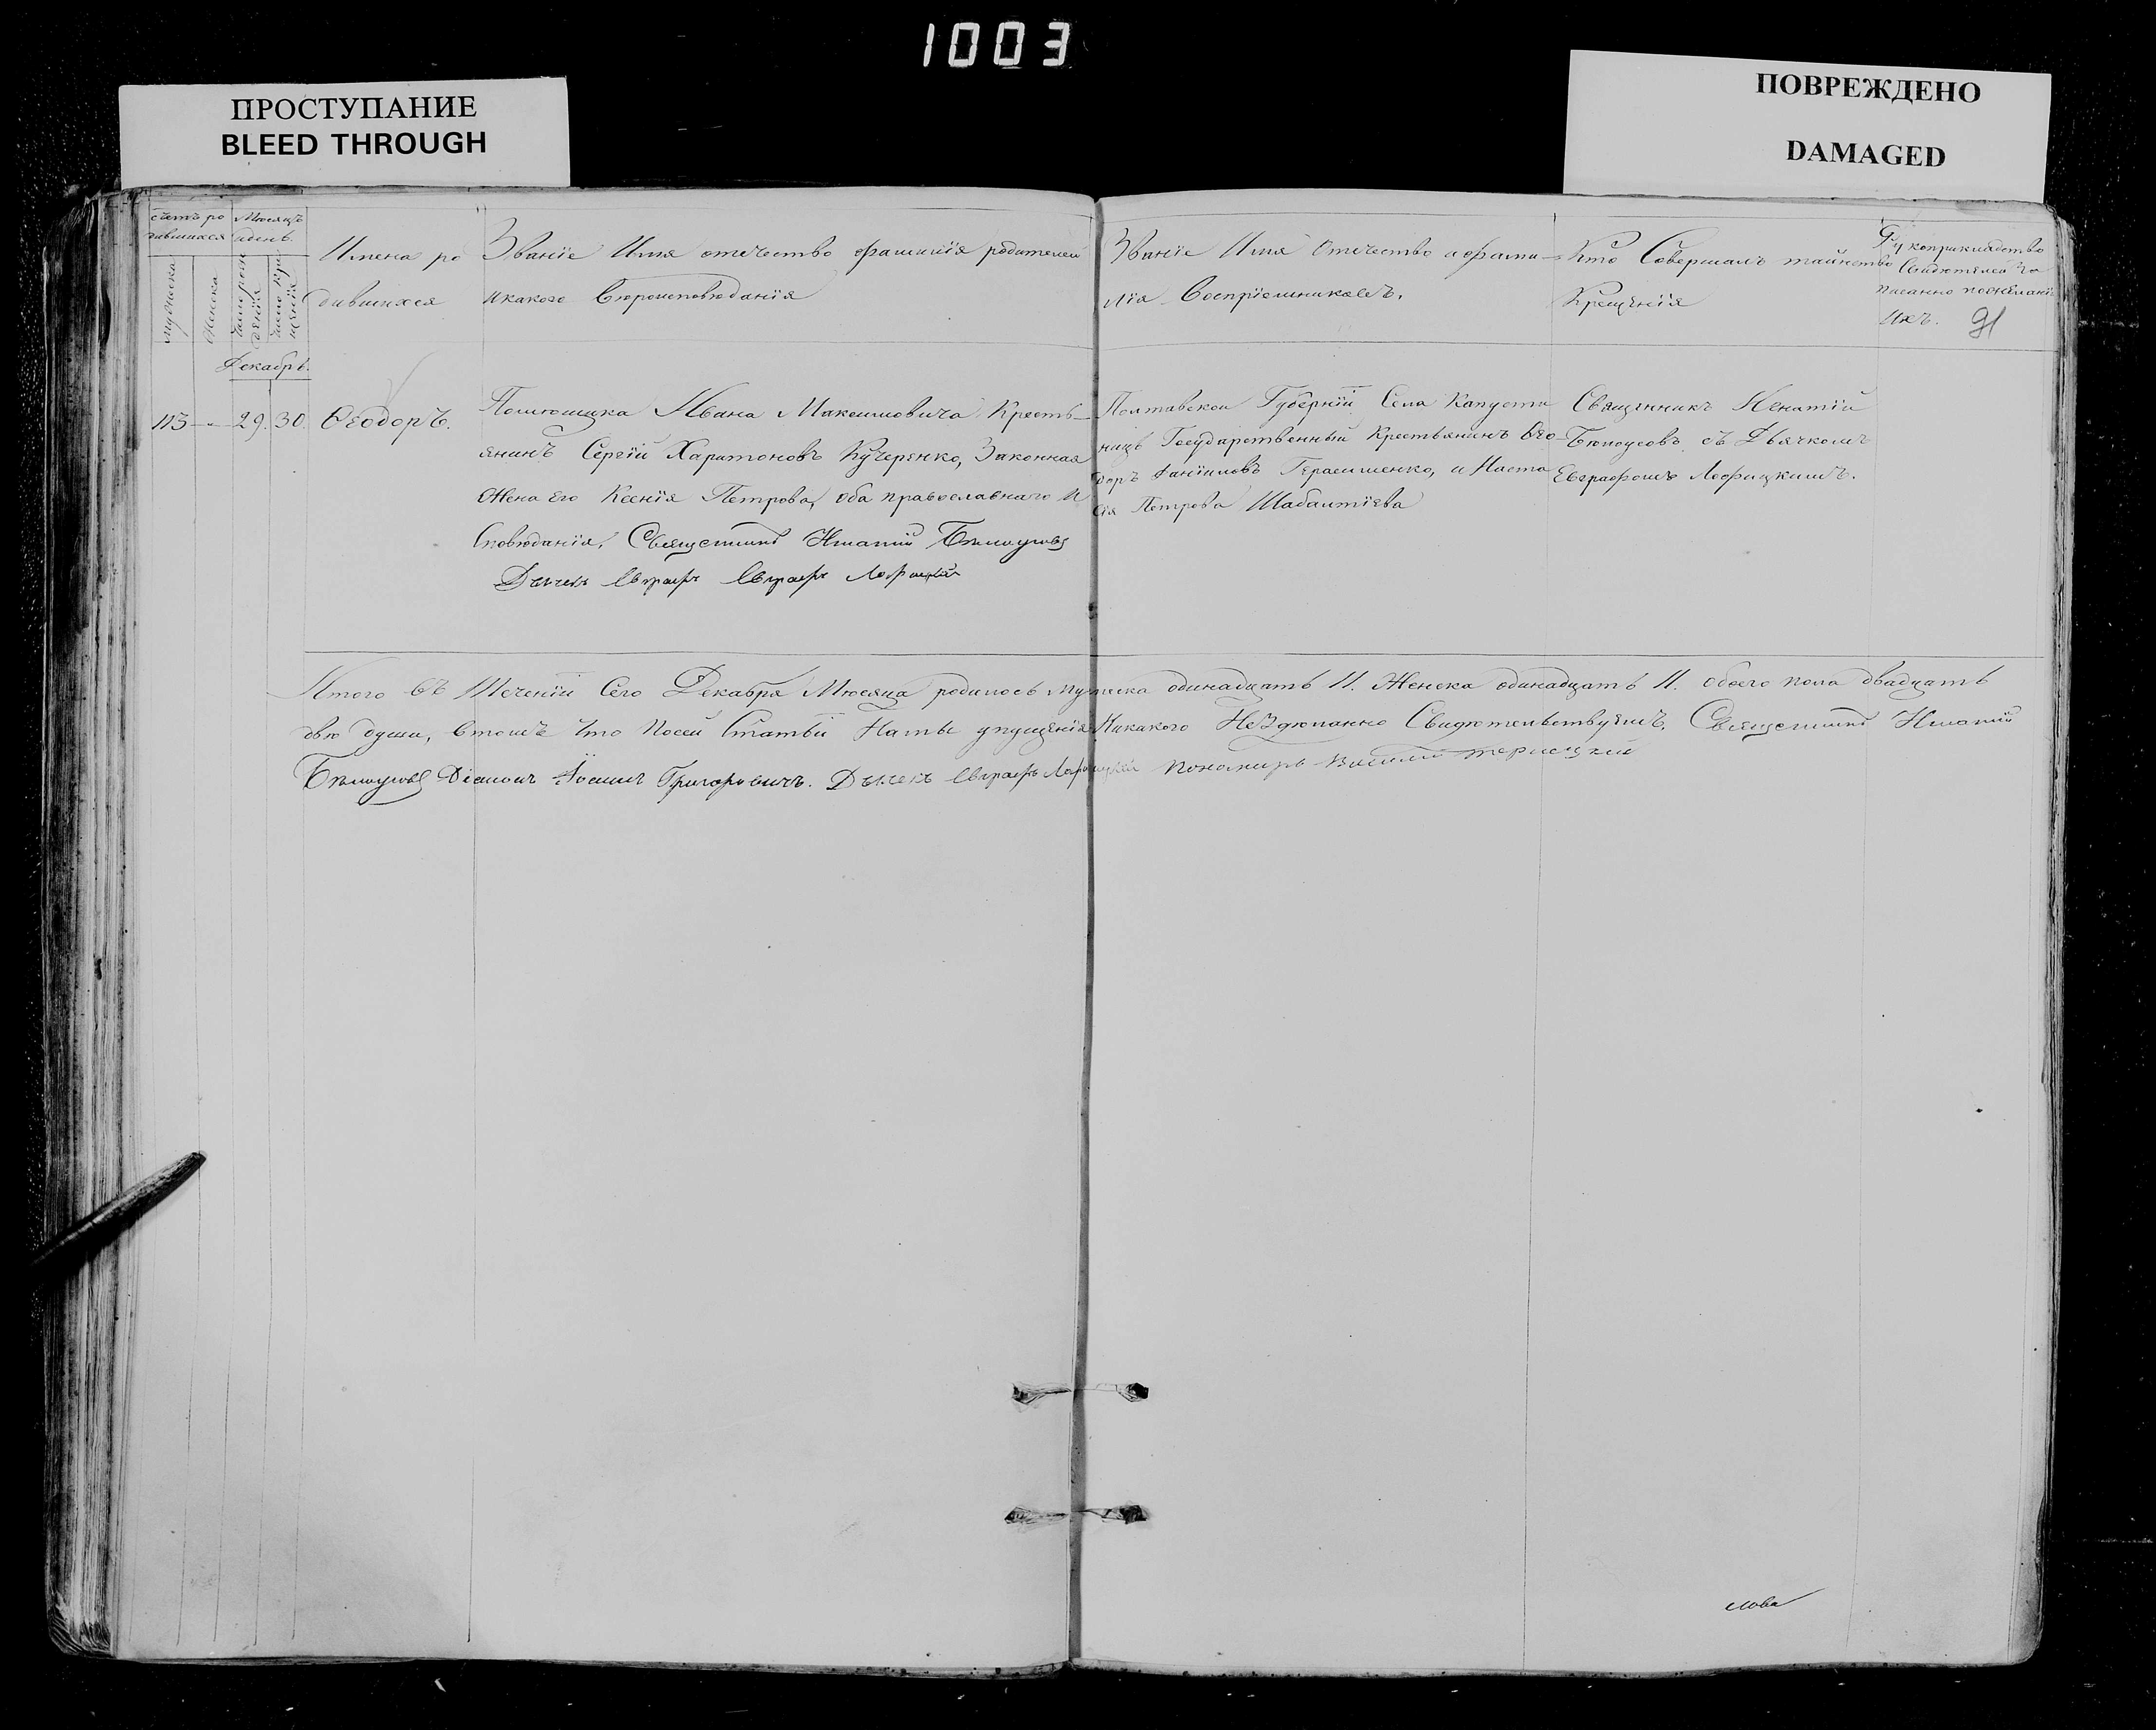 1003
ПРОСТУПАНИЕ
BLEED THROUGH
ПОВРЕЖДЕНО
DAMAGED
счетъ ро
дившихся
Мѣсяцъ
и день.
мужеска
женска
число рож
денія
число кре
щенія
Имена ро
дившихся
Званіе Имя отечество фамилія родителей
и какого вѣроисповѣданія
Званіе Имя Отечество и фами-
лія воспріемниковъ.
Кто Совершалъ таинство
Крещенія
Рукоприкладство
свидѣтелей за
писанно по желанію
ихъ.
91
Декабрь.
113 - 29. 30. Ѳеодоръ.
Помѣщика Ивана Максимовича Кресть-
янинъ Сергій Харитоновъ Кучеренко, Законная
жена его Ксенія Петрова, оба православнаго и
сповѣданія, Священникъ Игнатій Бѣлоусовъ
Дьячекъ Евграфъ Евграфъ
Полтавской Губерніи Села Капусти
нецъ Государственный Крестьянинъ Ѳео-
доръ Даніиловъ Герасименко, и Наста
сія Петрова
Священникъ Игнатій
Бѣлоусовъ съ Дьячкомъ
Евграфомъ
Итого въ теченіи Сего Декабря Мѣсяца родилось мужеска одинадцать 11. Женска одинадцать 11. обоего пола двадцать
двѣ души, втомъ что посей Статьи Нами упущенія Никакого Не здѣланно Свидѣтельствуемъ. Священникъ Игнатій
Бѣлоусовъ Діаконъ Іоаннъ Григоровичъ. Дьячекъ Евграфъ Пономарь Василій